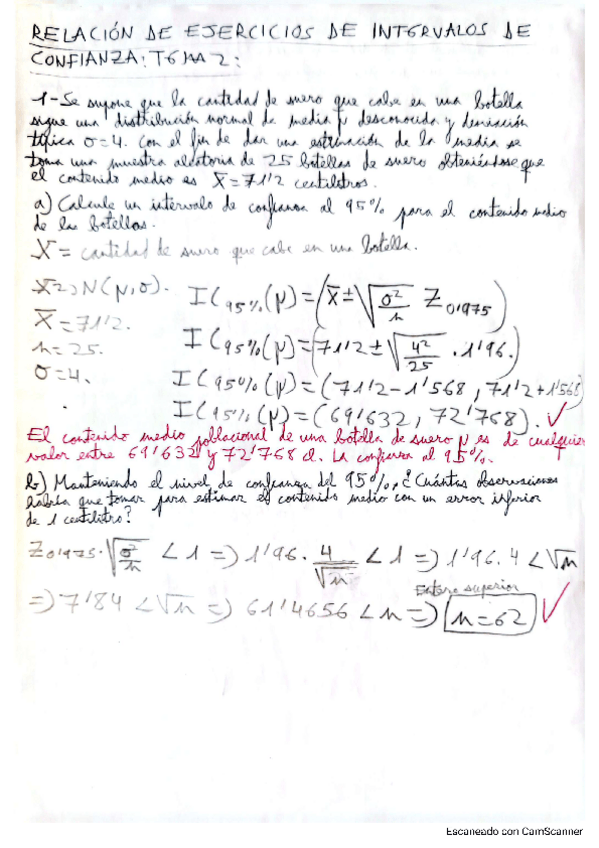 RELACIÓN DE EJERCICIOS DE INTERVALOS DE
CONFIANZA: TEMA 2:
1- Se supone que la cantidad de suero que cabe en una botella
sigue una distribución normal de media μ desconocida y desviación
típica σ=4. Con el fin de dar una estimación de la media se
toma una muestra aleatoria de 25 botellas de suero obteniéndose que
el contenido medio es X̄=71'2 centilitros.
a) Calcule un intervalo de confianza al 95% para el contenido medio
de las botellas.
X = cantidad de suero que cabe en una botella.
X=>N(μ,σ).
X̄=71'2.
n=25.
σ=4.
IC95%(μ)=(X̄±√σ²/n Z0'975)
IC95%(μ)=(71'2±√4²/25 ·1'96.)
IC95%(μ)=(71'2-1'568, 71'2+1'568)
IC95%(μ)=(69'632, 72'768). ✓
El contenido medio poblacional de una botella de suero μ es de cualquier
valor entre 69'632 y 72'768 cl. La confianza al 95%.
b) Manteniendo el nivel de confianza del 95%, ¿Cuántas observaciones
habría que tomar para estimar el contenido medio con un error inferior
de 1 centilitro?
Z0'975·√σ²/n <1 => 1'96· 4/√n <1 => 1'96·4 <√n
Entero superior
=> 7'84 <√n => 61'4656 <n => n=62 ✓
Escaneado con CamScanner